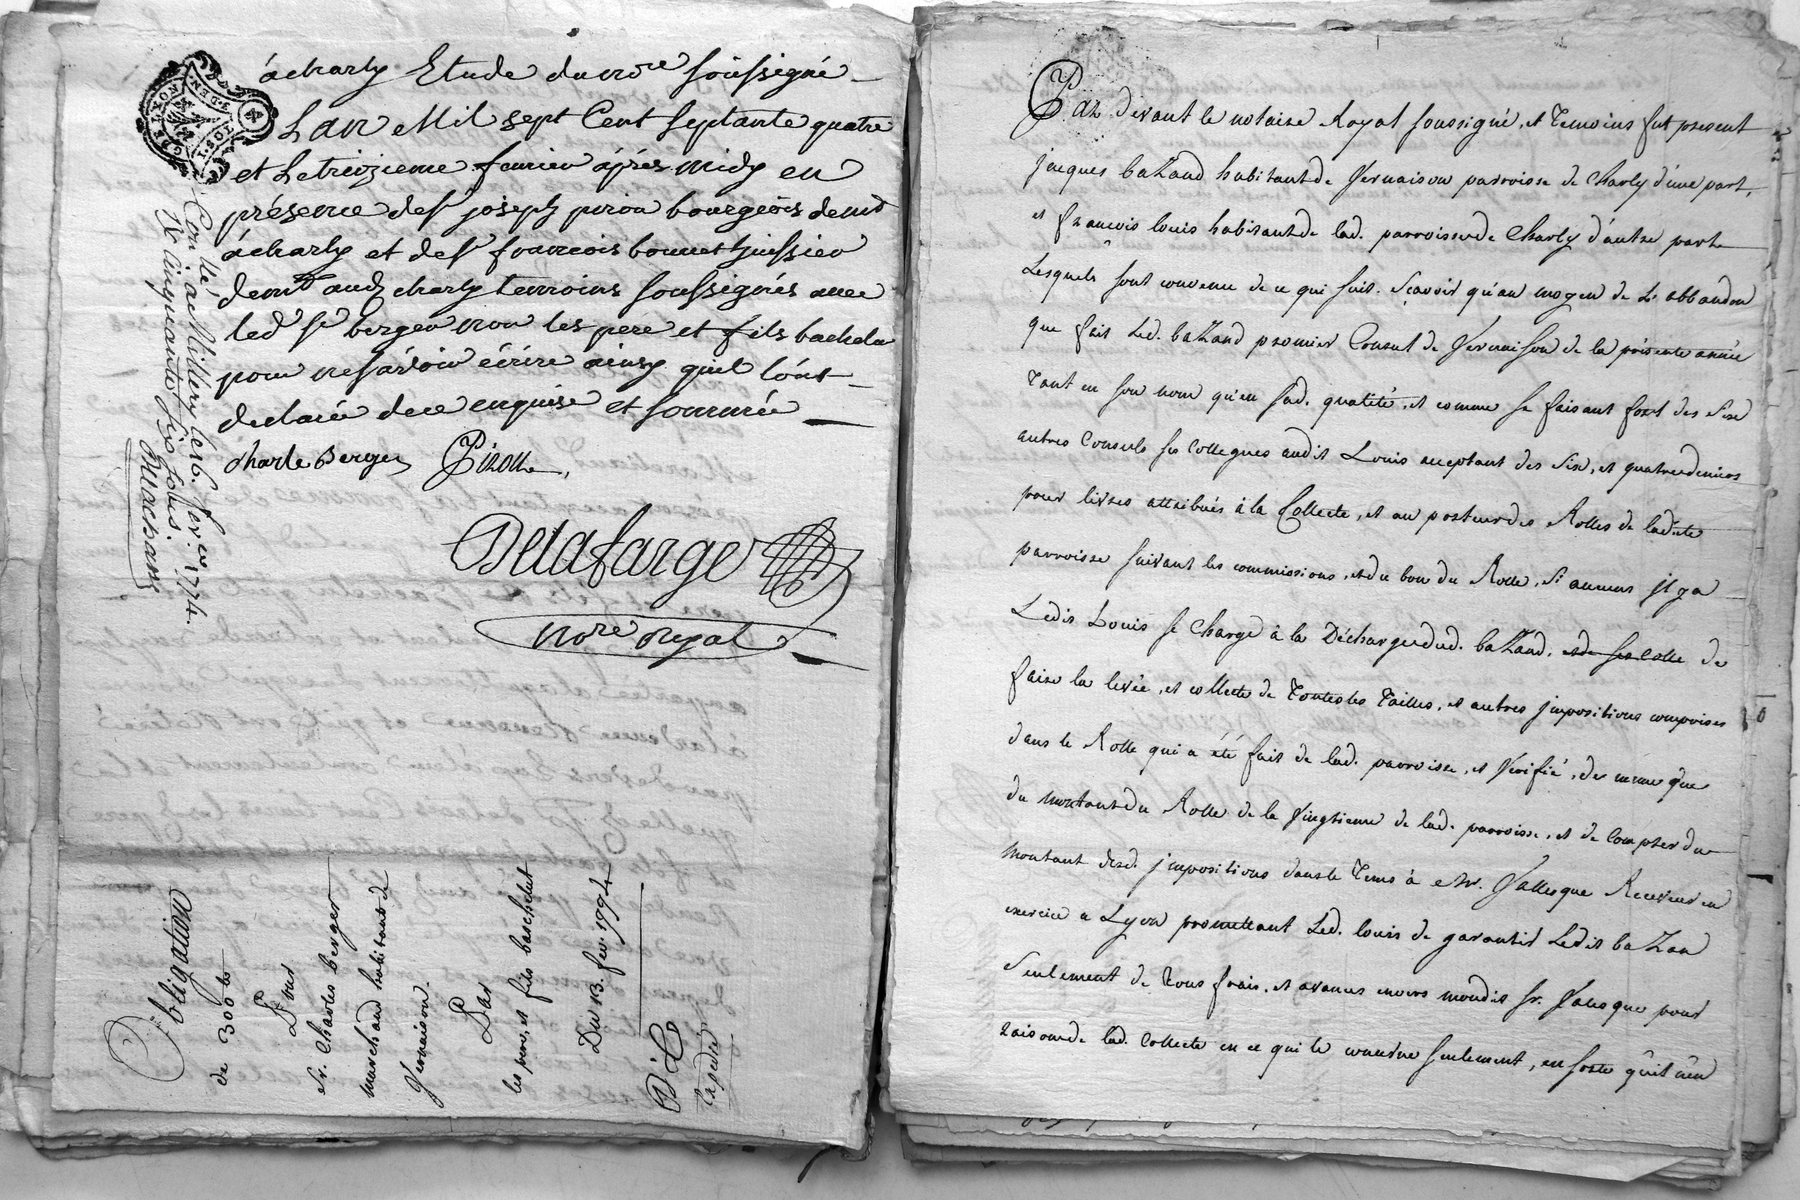 à charly Etude du no.re soussigné
L'an Mil sept Cent septante quatre
et Le treizieme fevrier après midy en
présence de s.r joseph piron bourgeois dem.t
à charly et de s.r francois bonnet huissier
dem.t aud. charly temoins soussignés avec
led. s.r berger non les pere et fils bachelu
pour ne savoir écrire ainsy qu'il l'ont
declaré de ce enquis et sommé
Charle Berger Piron
Delafarge
no.re royal
Con.lé à Millery le 16. fev.er 1774.
GEN. LYON
Obligation
de 300 ₶
Pour
Sr. Charles berger
marchand habitant de
Vernaison.
Par
les pere, et fils baschelut
Du 13. fev. 1774
Expedié
Par devant le notaire Royal soussigné, et temoins fut present
jacques baZand habitant de Vernaison parroisse de Charly d'une part,
et francois louis habitant de lad. parroisse de Charly d'autre part
Lesquels sont convenu de ce qui suit. Sçavoir qu'au moyen de L'abbandon
que fait Led. baZand premier Consul de Vernaison de la présente année
tant en son nom qu'en sad. qualité, et comme se faisant fort des Six
autres Consuls ses collegues audit Louis acceptant des Six, et quatre deniers
pour livres attribués à la Collecte, et au porteur des Rolles de ladite
parroisse suivant les commissions, et du bon du Rolle, si aucuns il y a
Ledit Louis se Charge à la Décharge dud. baZand, et de ses Colle de
faire la levée, et collecte de toutes les tailles, et autres jmpositions comprises
dans le Rolle qui a été fait de lad. parroisse, et Verifié, de meme que
du montant du Rolle de la Vingtieme de lad. parroisse, et de Compter du
montant desd. jmpositions dans le tems à Mr. Vallesque Receveur en
exercice a Lyon promettant Led. louis de garantir Ledit baZan
Seulement de tous frais, et avances envers mondit Sr. Valesque pour
raison de lad. Collecte en ce qui le concerne seulement, en sorte qu'il n'en